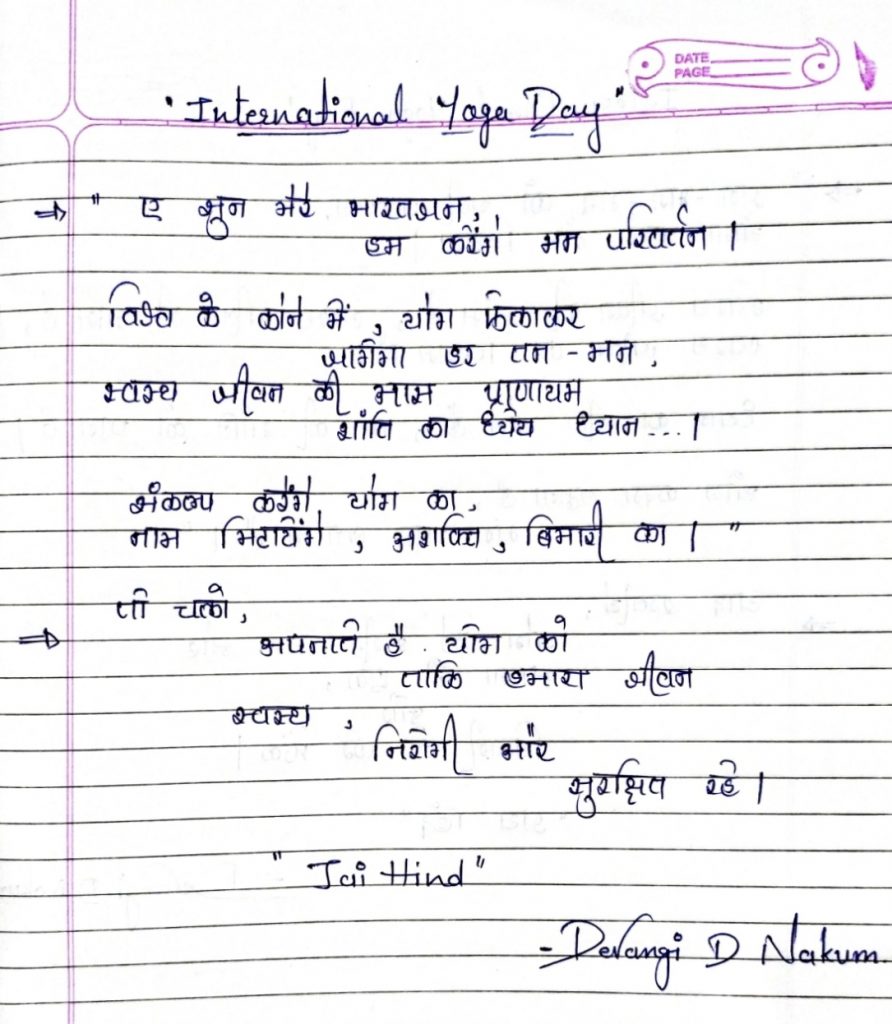 DATE
PAGE
"International Yoga Day"
⇒ " ए सुन मेरे भारतजन,
हम करेंगे मन परिवर्तन।
विश्व के कोने में, योग फैलाकर
जागेगा हर तन-मन,
स्वस्थ जीवन की आस प्राणायम
शांति का ध्येय ध्यान...।
संकल्प करेंगे योग का,
नाम मिटायेंगे, अशक्ति, बिमारी का। "
⇒ तो चलो,
अपनाते है योग को
ताकि हमारा जीवन
स्वस्थ,
निरोगी और
सुरक्षित रहे।
"Jai Hind"
- Devangi D Nakum